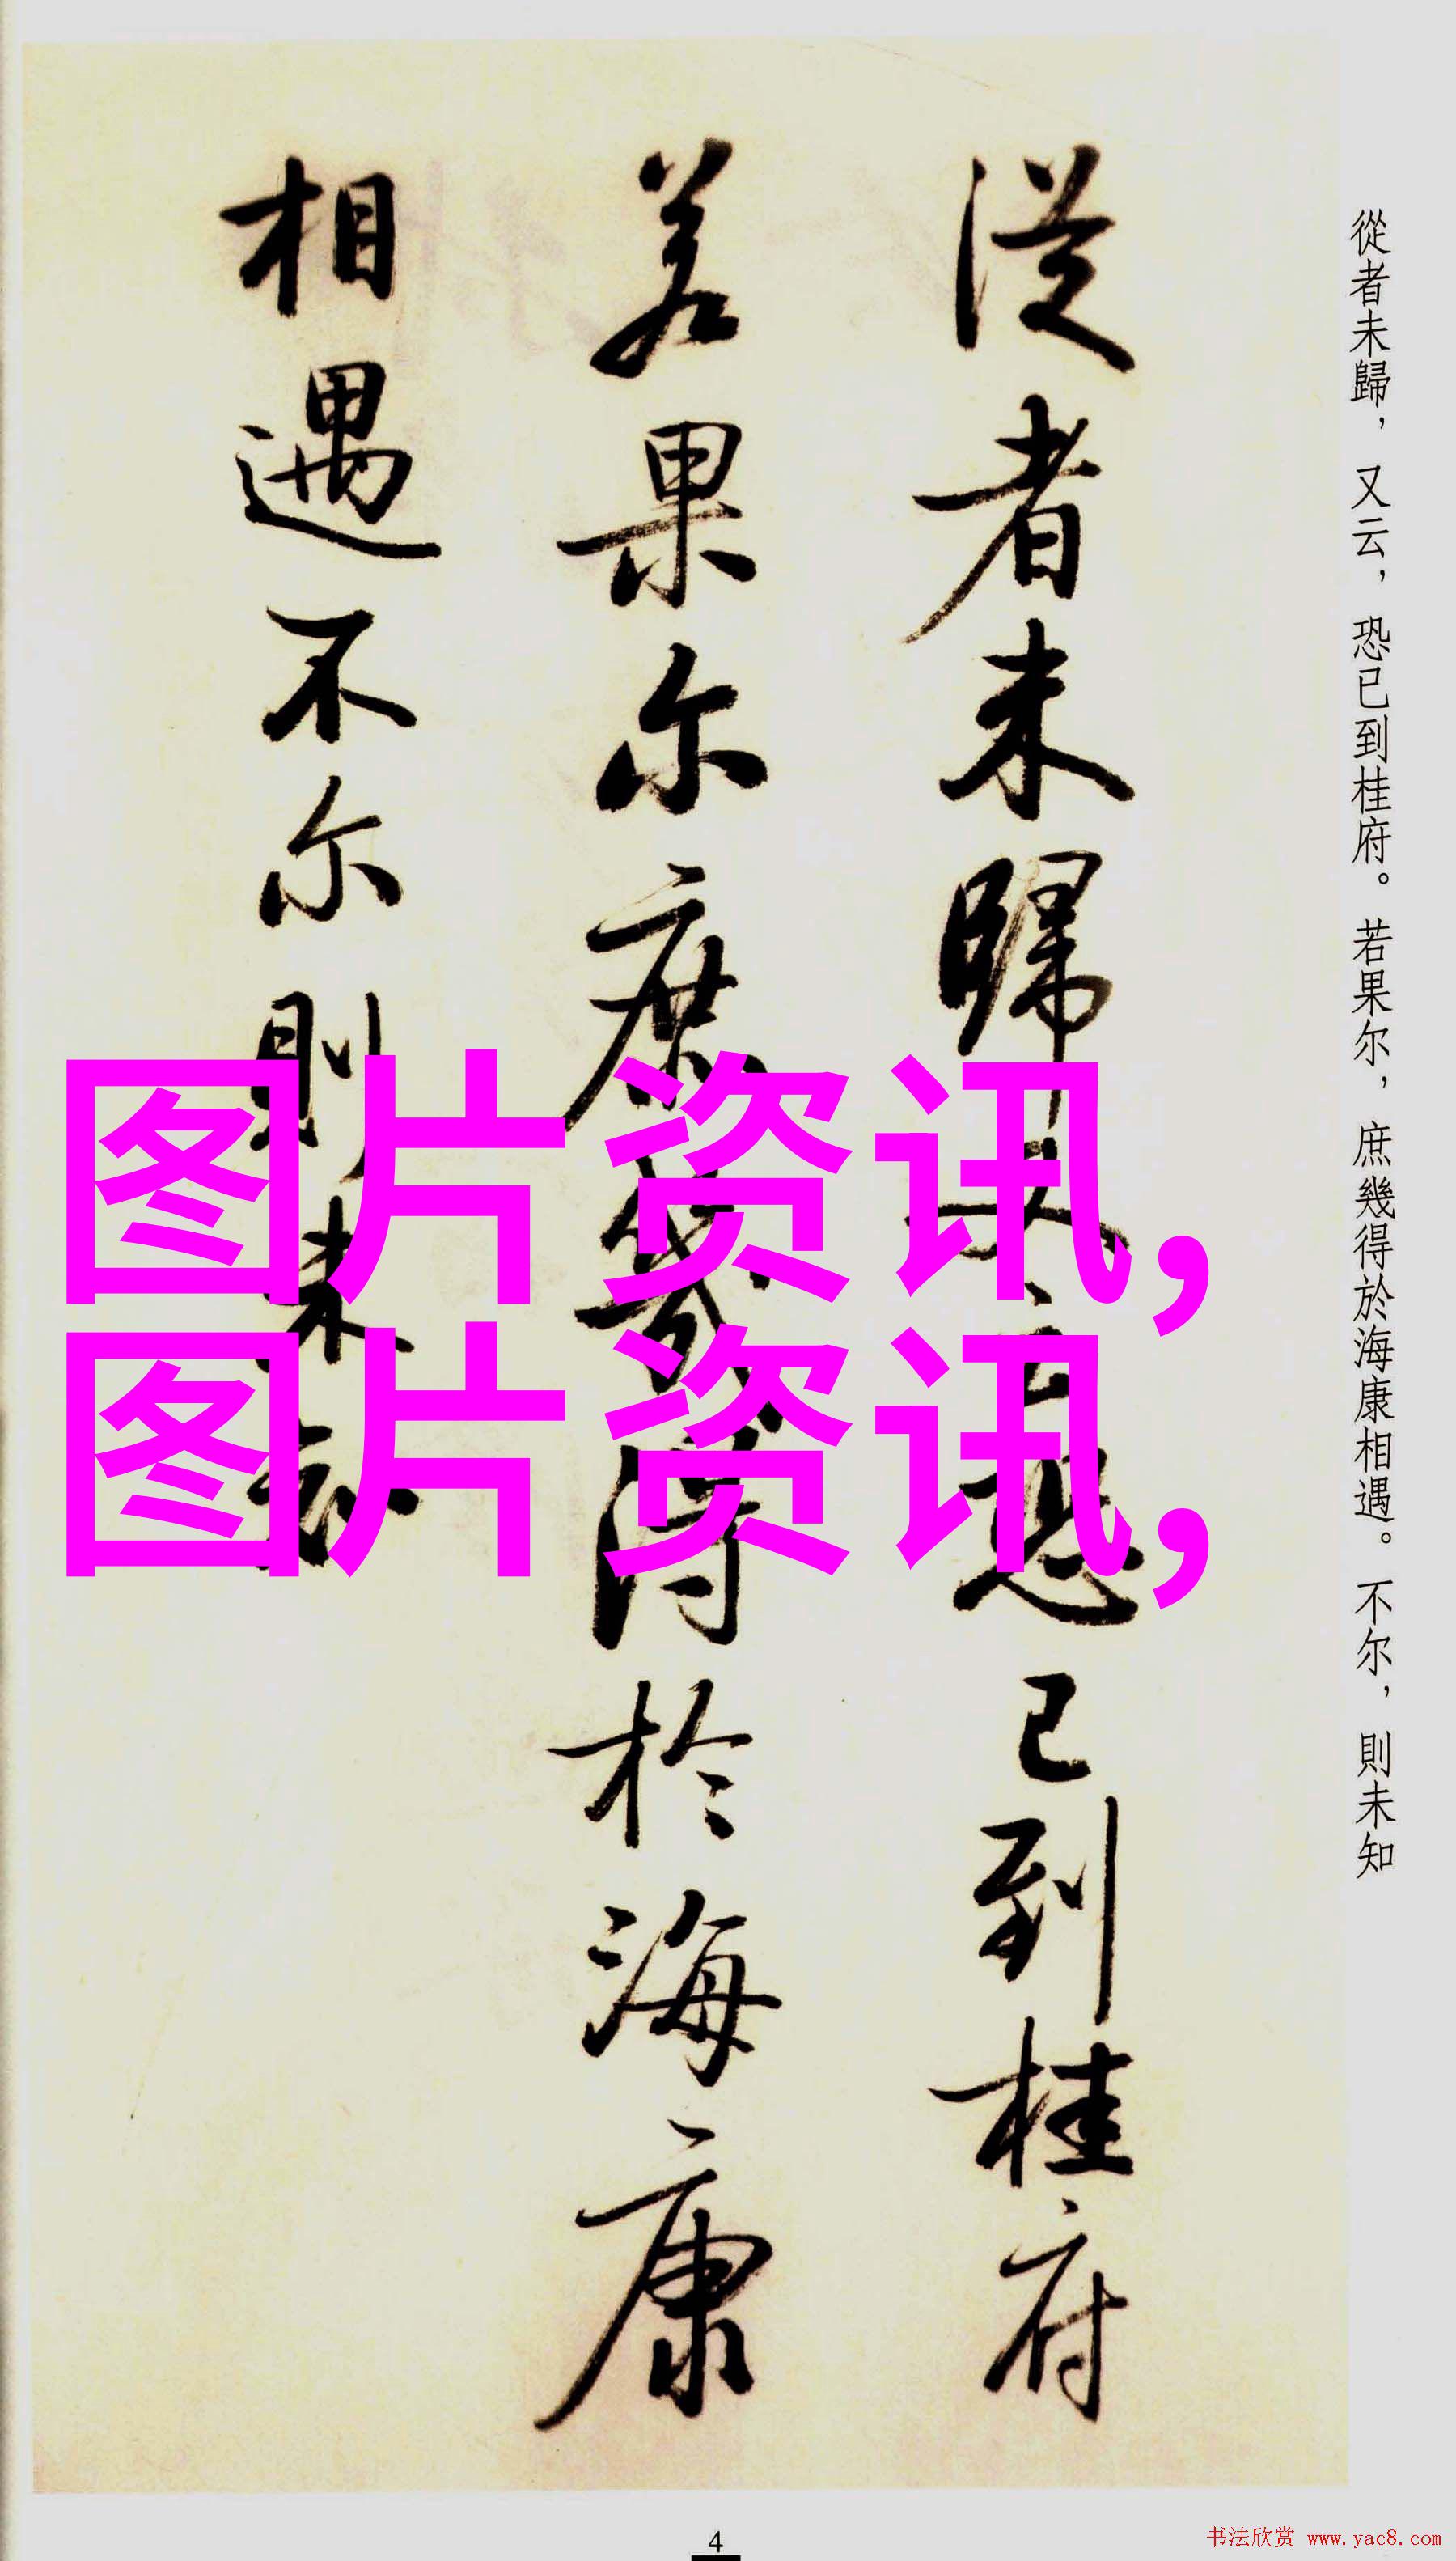 從者未歸，又云，恐已到桂府。若果尔，庶幾得於海康相遇。不尔，則未知
從者未歸又云恐已到桂府
若果尔庶幾得於海康
相遇不尔則未知
图片资讯,
图片资讯,
4
书法欣赏 www.yac8.com